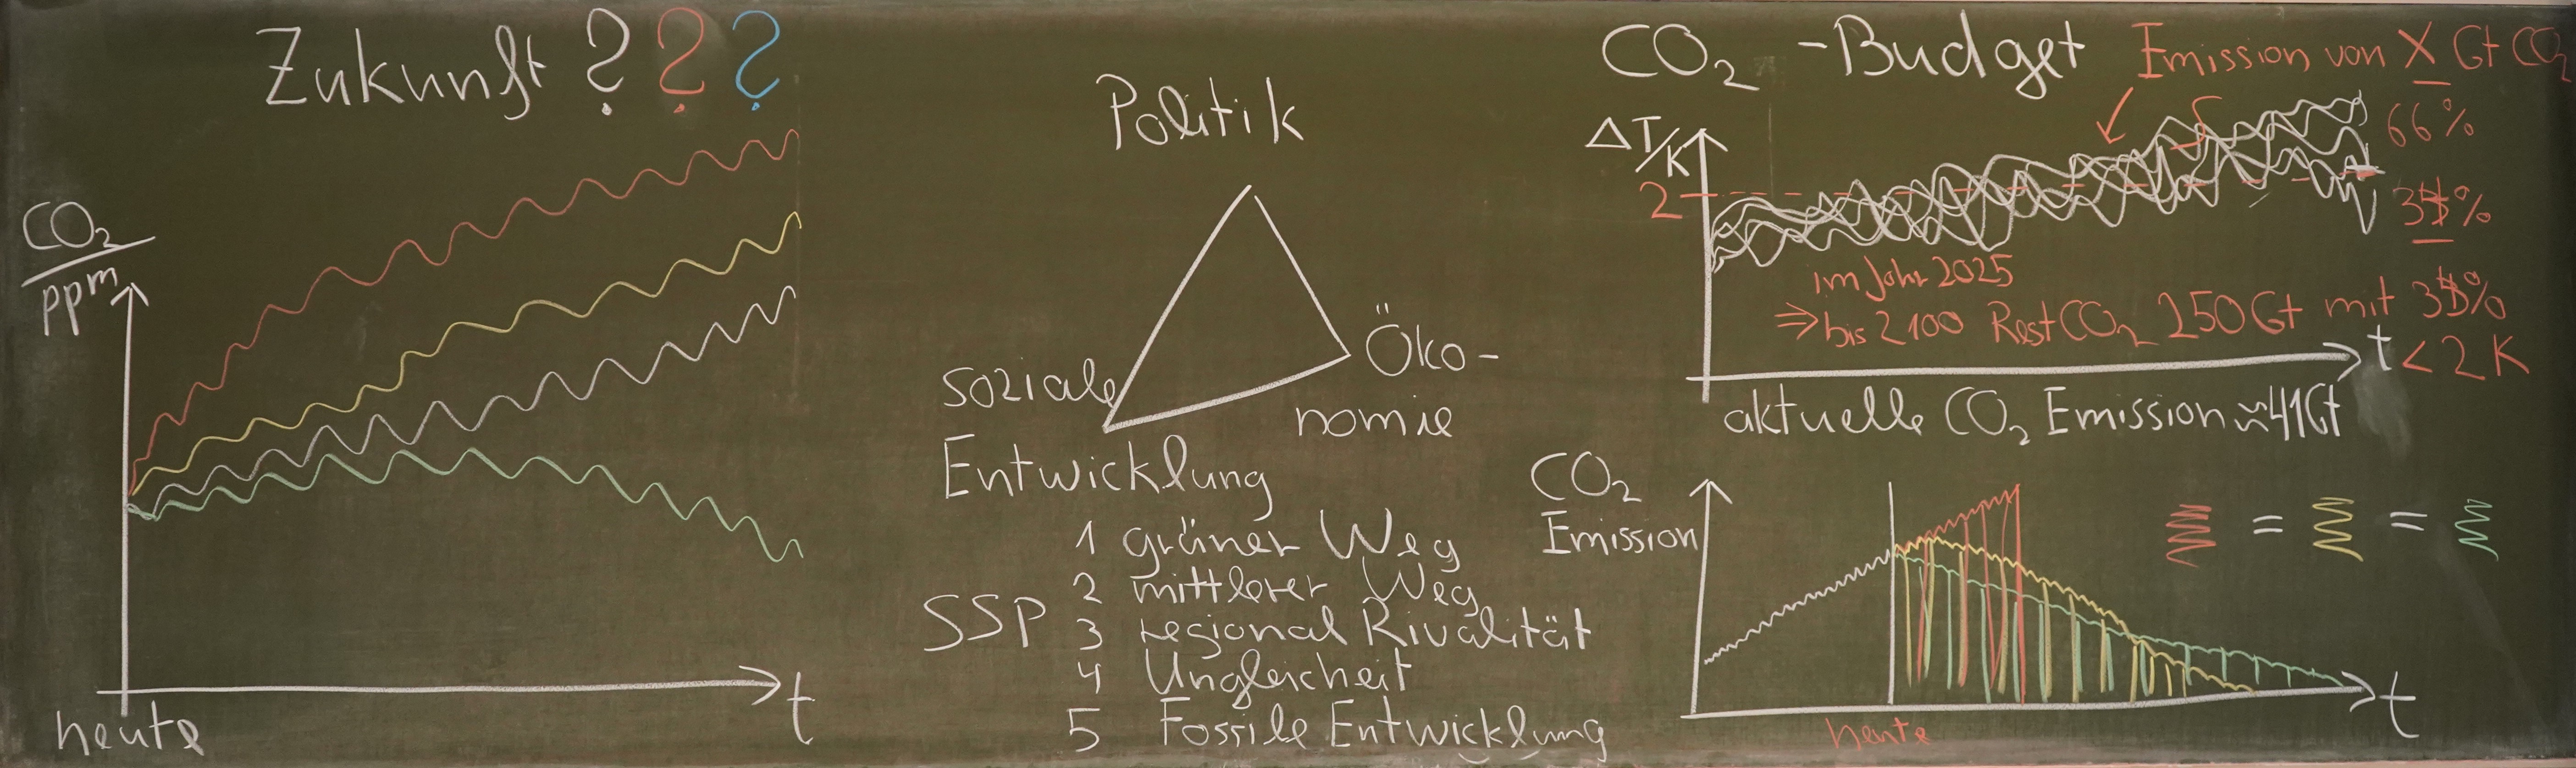 Zukunft ? ? ?
CO2
ppm
t
heute
Politik
soziale
Entwicklung
Öko-
nomie
SSP
1 grüner Weg
2 mittlerer Weg
3 regional Rivalität
4 Ungleicheit
5 Fossile Entwicklung
CO2-Budget
Emission von X Gt CO2
ΔT/K
2
66%
%
im Jahr 2025
⇒ bis 2100 Rest CO2 250 Gt mit
< 2 K
t
aktuelle CO2 Emission ≈ 41 Gt
CO2
Emission
= =
heute
t